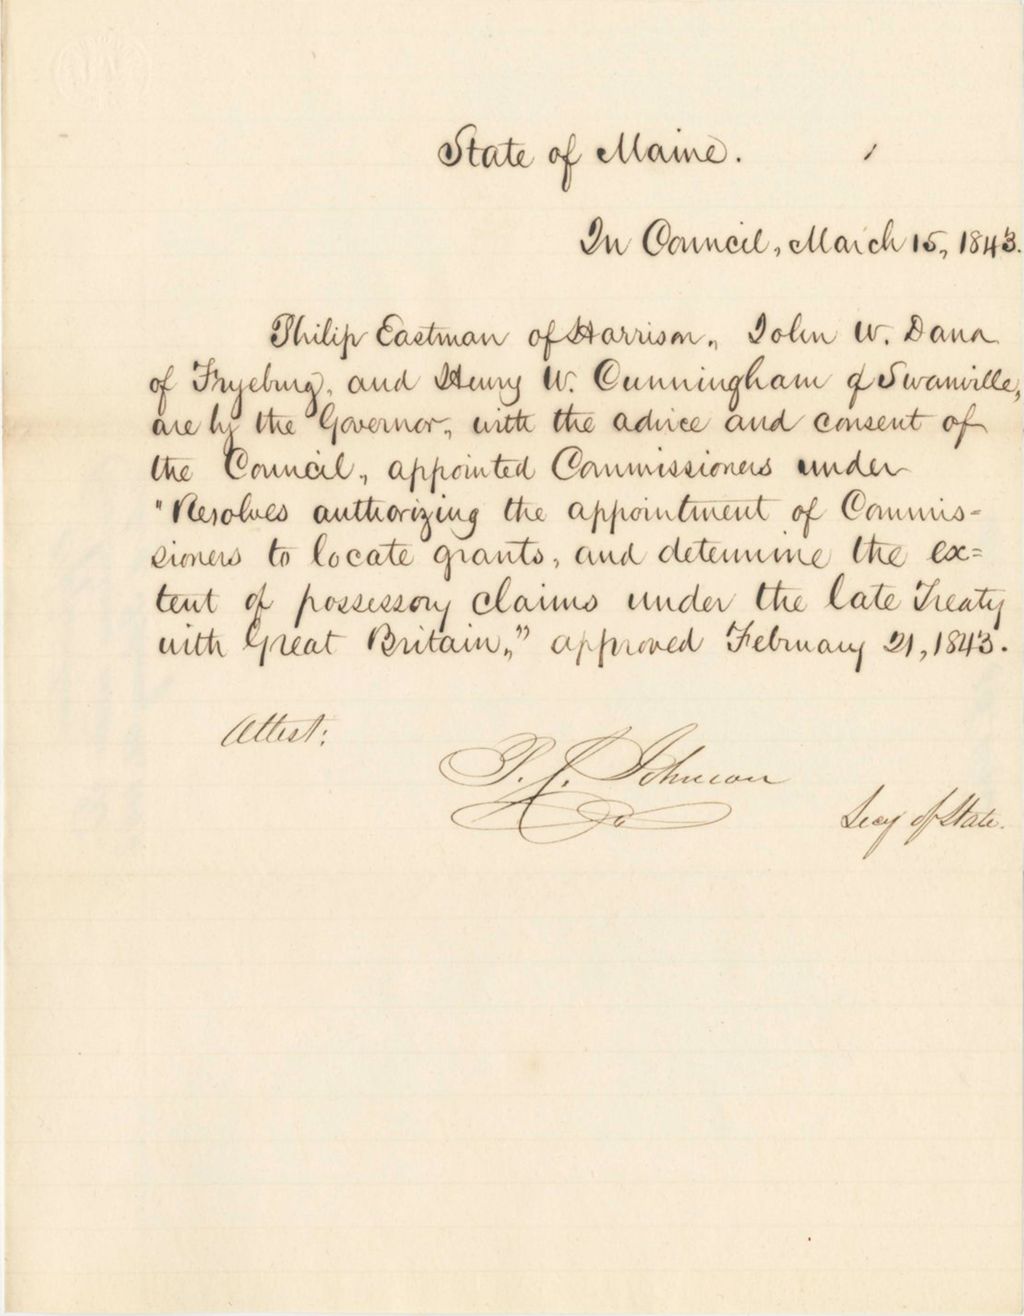 State of Maine.
In Council, March 15, 1843.
Philip Eastman of Harrison, John W. Dana
of Fryeburg, and Henry W. Cunningham of Swanville,
are by the Governor, with the advice and consent of
the Council, appointed Commissioners under
"Resolves authorizing the appointment of Commis-
sioners to locate grants, and determine the ex=
tent of possessory claims under the late Treaty
with Great Britain," approved February 21, 1843.
Attest:
P. C. Johnson
Secy of State.